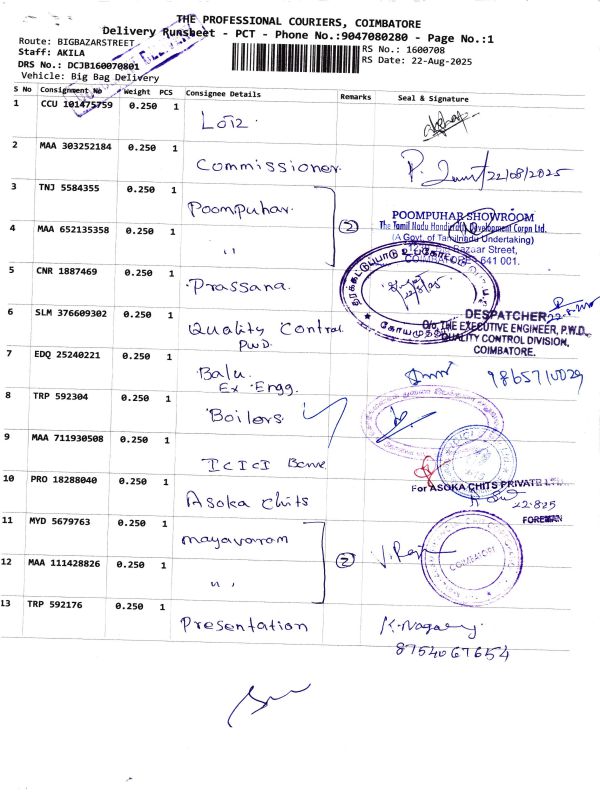 THE PROFESSIONAL COURIERS, COIMBATORE
Delivery Runsheet - PCT - Phone No.:9047080280 - Page No.:1
Route: BIGBAZARSTREET
RS No.: 1600708
Staff: AKILA
RS Date: 22-Aug-2025
DRS No.: DCJB160070801
Vehicle: Big Bag Delivery
S No Consignment No Weight PCS Consignee Details Remarks Seal & Signature
1 CCU 101475759 0.250 1 Lotz.
2 MAA 303252184 0.250 1 Commissioner. 22/08/2025
3 TNJ 5584355 0.250 1 Poompuhar.
POOMPUHAR SHOWROOM
The Tamil Nadu Handicrafts Development Corpn Ltd.
(A Govt. of Tamilnadu Undertaking)
Bazaar Street,
COIMBATORE - 641 001.
4 MAA 652135358 0.250 1 " 2
5 CNR 1887469 0.250 1 Prassana.
6 SLM 376609302 0.250 1 Quality Control
PWD.
DESPATCHER
O/o. THE EXECUTIVE ENGINEER, P.W.D.,
QUALITY CONTROL DIVISION,
COIMBATORE.
7 EDQ 25240221 0.250 1 Balu.
Ex Engg.
8 TRP 592304 0.250 1 Boilers.
9 MAA 711930508 0.250 1 ICICI
10 PRO 18288040 0.250 1 Asoka chits
For ASOKA CHITS PRIVATE
22.8.25
FOREMAN
11 MYD 5679763 0.250 1 mayavaram
COIMBATORE
12 MAA 111428826 0.250 1 " 2
13 TRP 592176 0.250 1 Presentation
8754067654